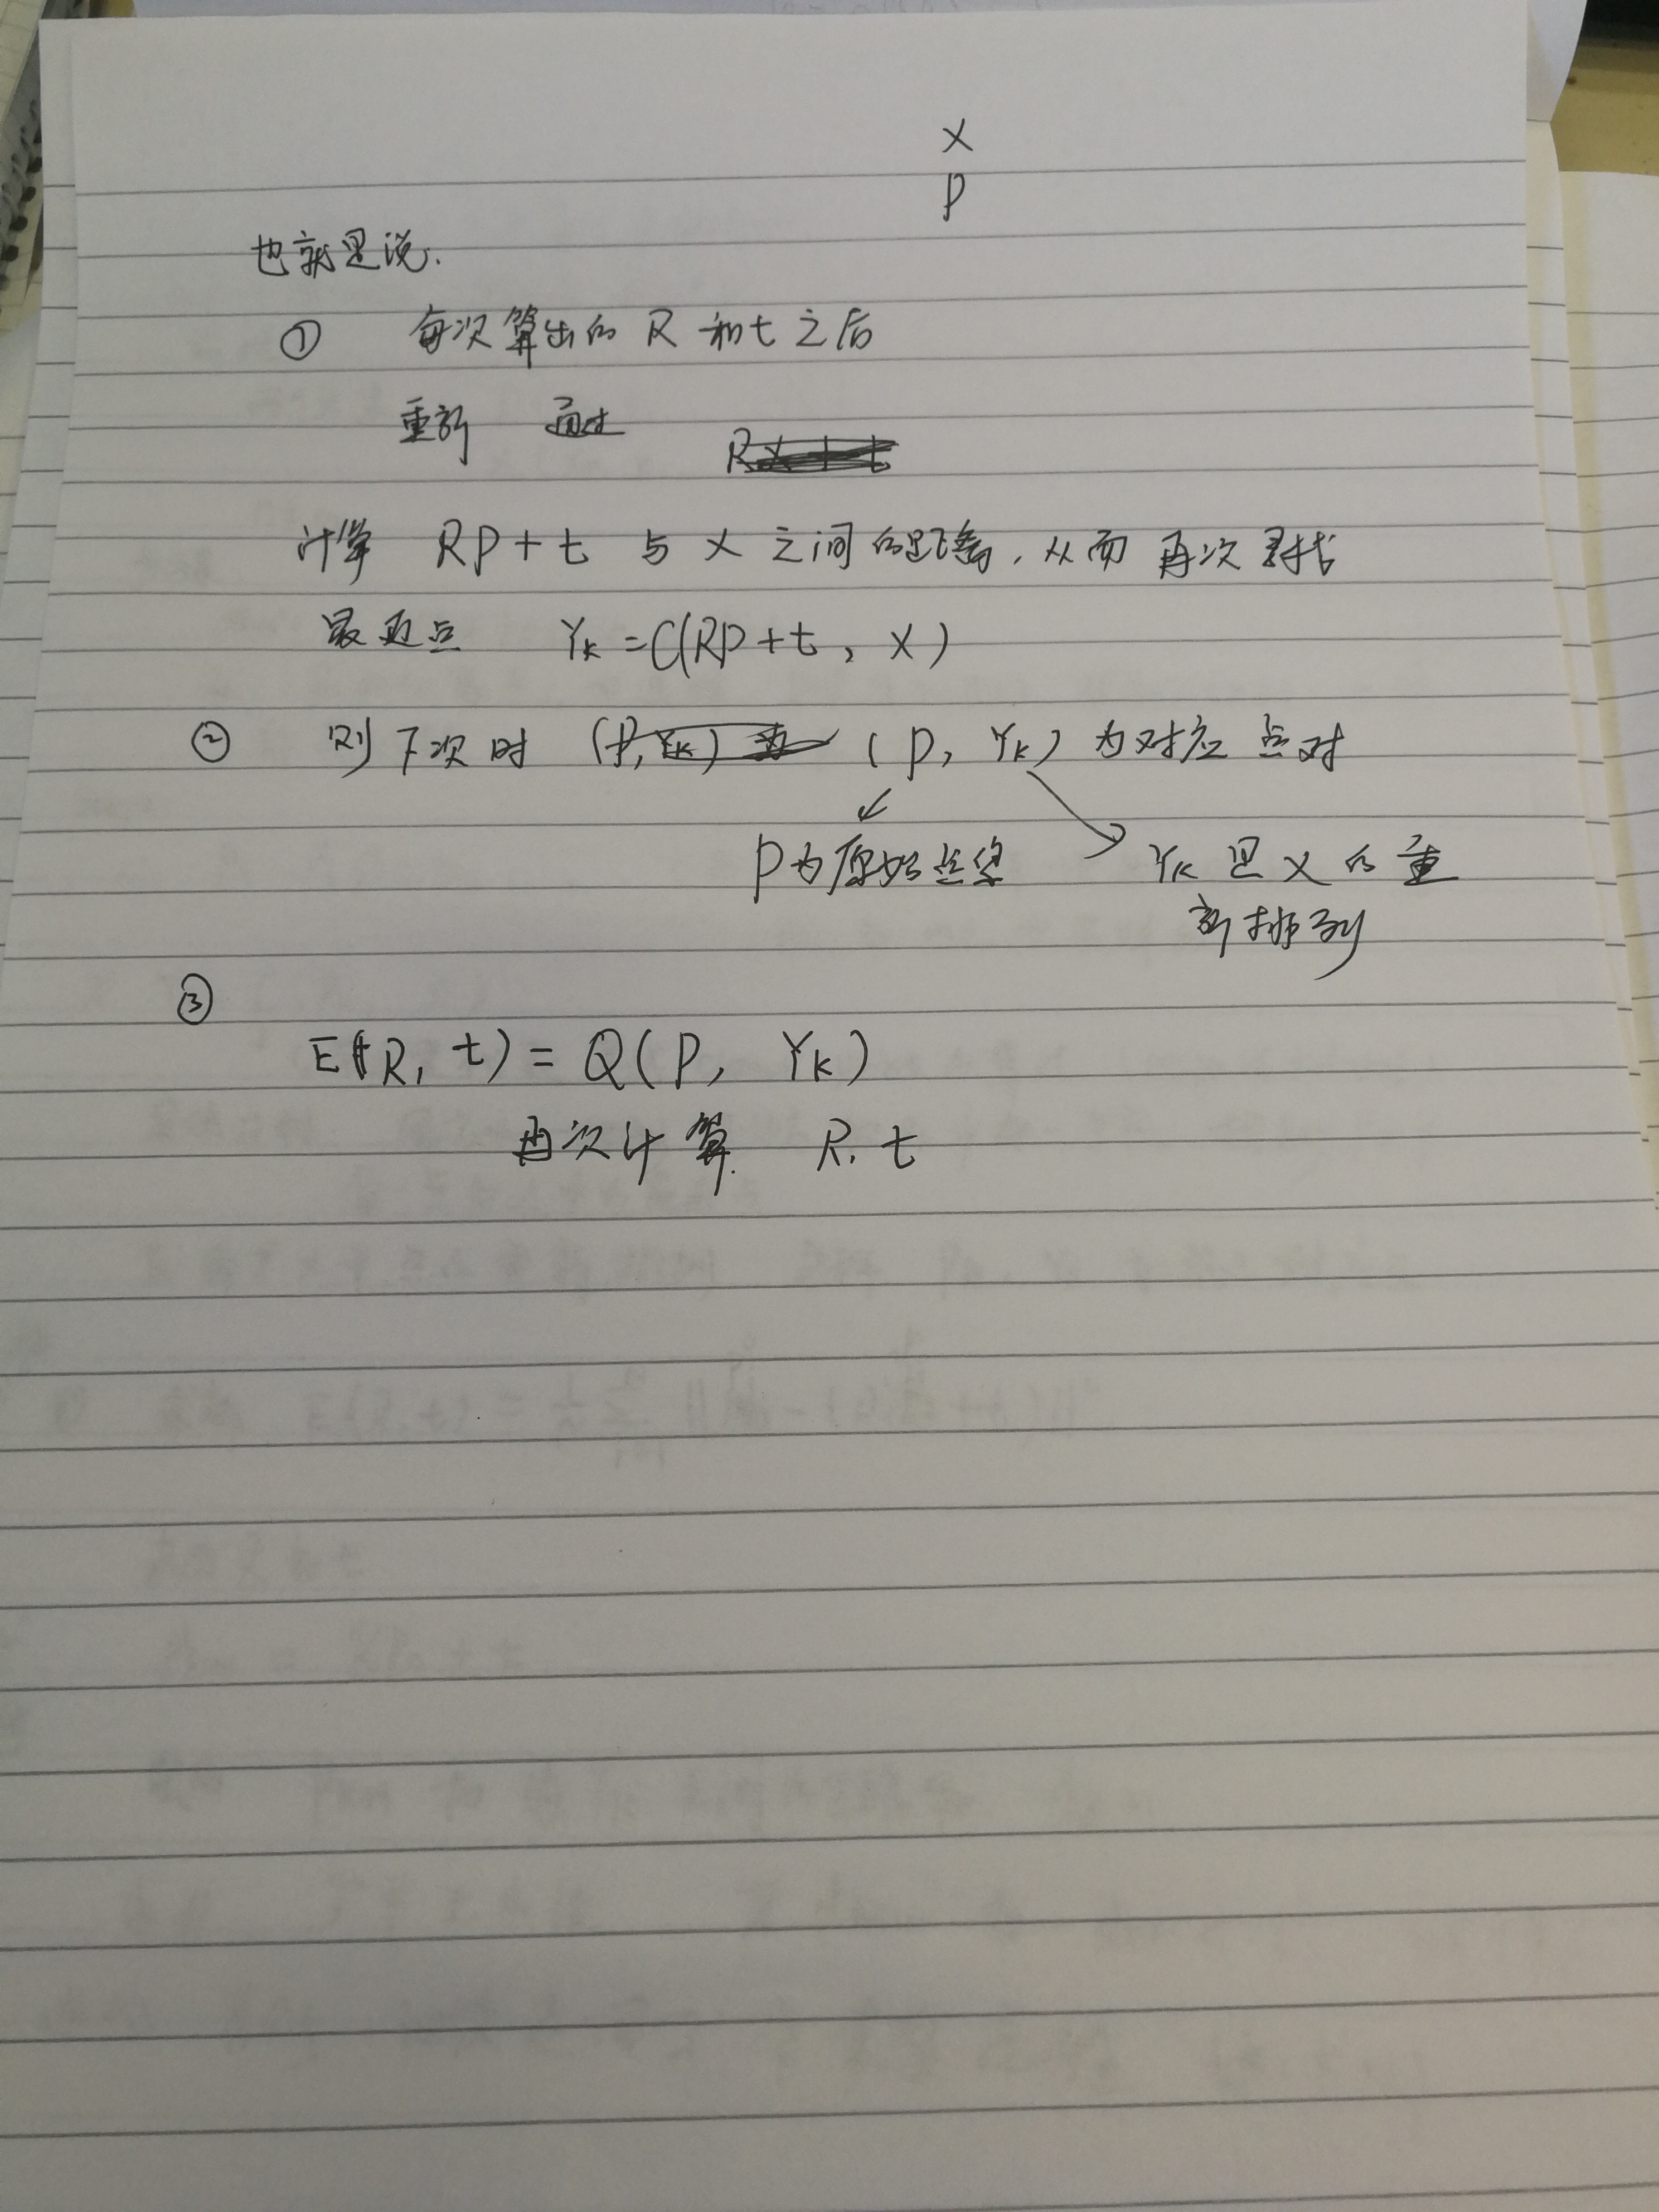 X
P
也就是说.
① 每次算出的 R 和 t 之后
重新 通过
计算 RP+t 与 X 之间的距离, 从而 再次寻找
最近点 Yk = C(RP+t, X)
② 则下次时 (P, Yk) 为对应点对
P为原始点集 Yk 是 X 的重
新排列
③
E(R, t) = Q(P, Yk)
再次计算. R, t